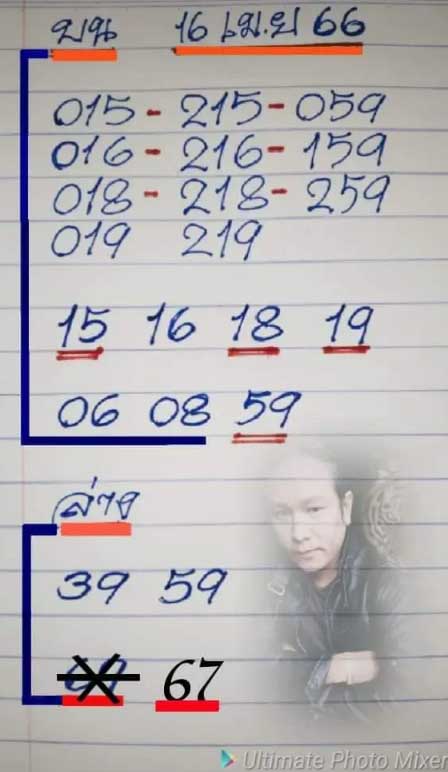 บน 16 เม.ย 66
015 - 215 - 059
016 - 216 - 159
018 - 218 - 259
019 219
15 16 18 19
06 08 59
ล่าง
39 59
67
Ultimate Photo Mixer